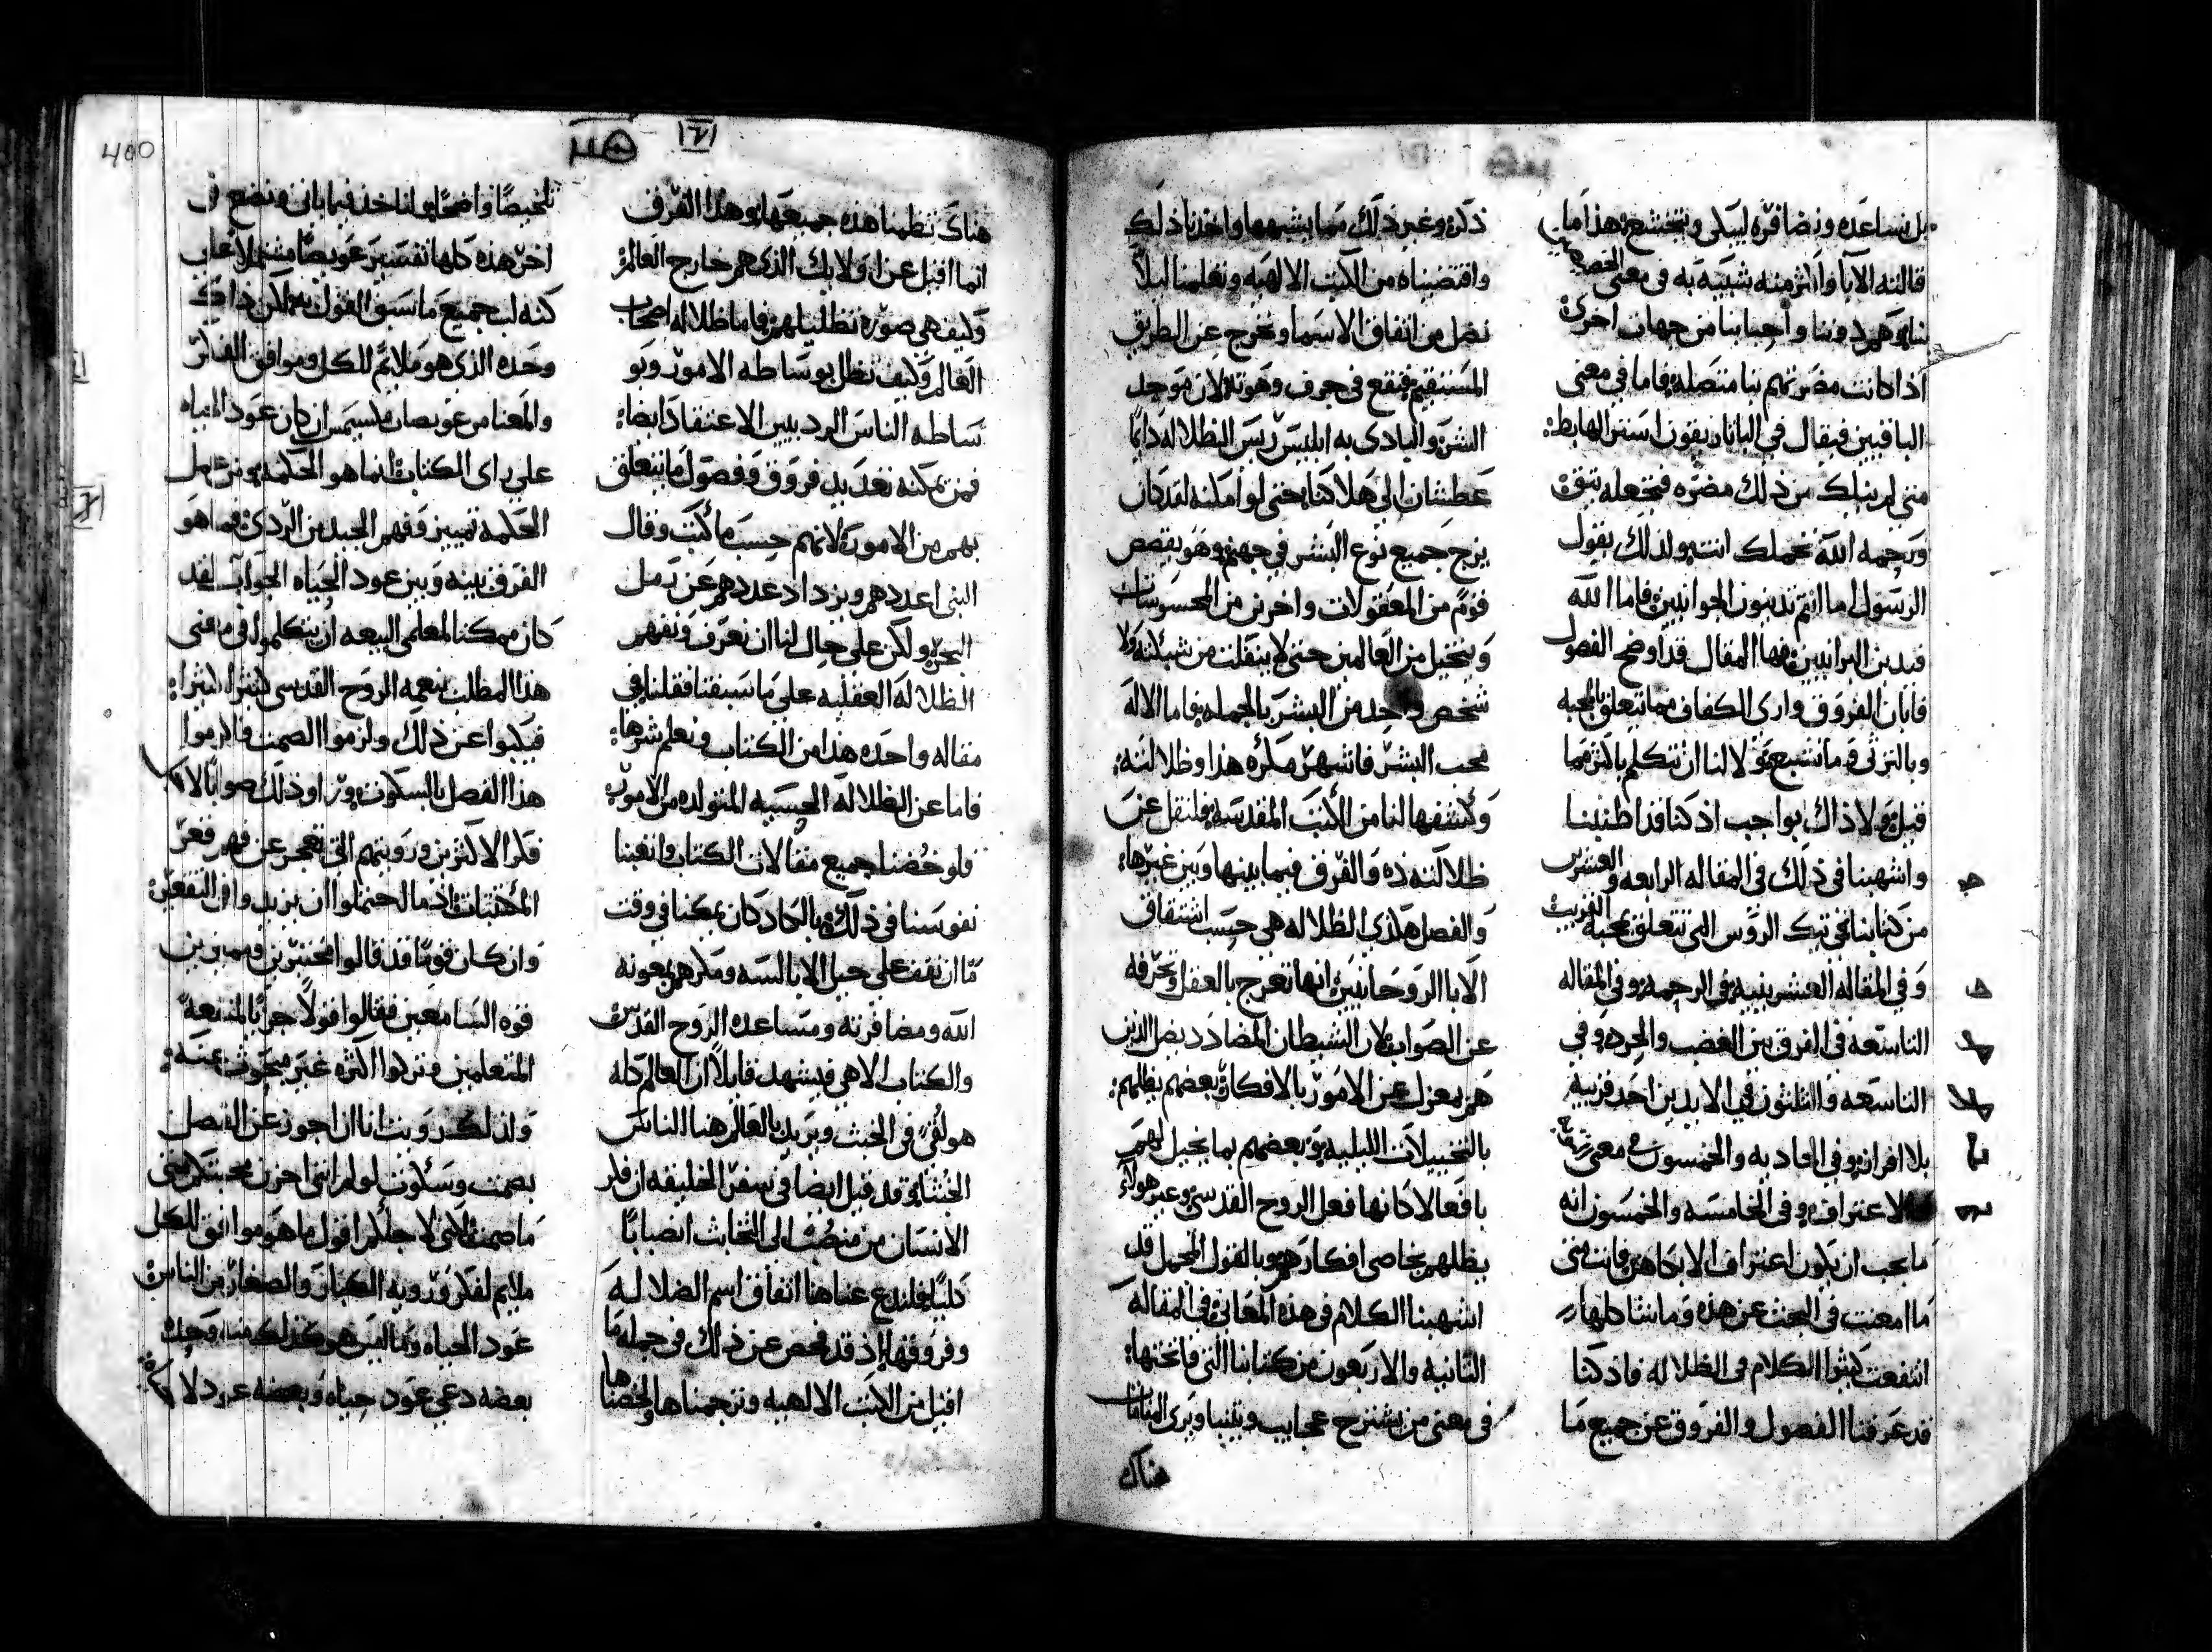 بل نساعده ونضافره ليبكي ويتخشع هذا ما
قالته الآبا واكثر منه شبيه به في معنى
بنا وهم دوننا واحبابنا من جهات اخرى
اذا كانت مضرتهم بنا متصله فاما في معنى
الباقيين فيقال في
متى لم ينلك من ذلك مضره فتجعله بتقوى
ورحمه الله تحملك انت ولذلك يقول
الرسول اما انتم تدينون الجوانيين فاما الله
فيدين البرانيين فهذا المقال قد اوضح الفصول
فابان الفروق وارى الكفاف مما تتعلق بالمحبه
وبالترثي وما نتبع ولا لنا ان نتكلم باكثر مما
قيل ولا ذاك بواجب اذ كنا قد اطنبنا
واشهبنا في ذلك في المقاله الرابعه والعشرين
من كتابنا في تيك الروس التي تتعلق بمحبة القريب
وفي المقاله العشرينيه في الرحمه وفي المقاله
التاسعه في الفرق بين الغضب والحرد وفي
التاسعه والثلثون في الابدين احد قريبه
بلا افراز وفي الحاديه والخمسون في معنى
الاعتراف وفي الخامسه والخمسون انه
ما يجب ان يكون اعتراف الا بكاهن فانت متى
ما امعنت في البحث عن هذه وما شاكلها
انتفعت كثيرا الكلام في الظلاله فاذ كنا
قد عرفنا الفصول والفروق عن جميع ما
ذكره وغير ذلك مما يشبهها واخذنا ذلك
واقتضبناه من الكتب الالهيه وتعلمنا ليلا
نضل من اتفاق الاسما ونخرج عن الطريق
المستقيم فنقع في جرف وهوته لان موجد
الشر والبادى به ابليس ريس الظلاله دايما
عطشان الى هلاكنا حتى لو امكنه لقد كان
يزج جميع نوع البشر في جهنم وهو يقصص
قوم من المعقولات واخرين من المحسوسات
ويتخيل من العالمين حتى لا ينفلت من شبكته ولا
شخص واحد من البشر بالجمله فاما الاله
محب البشر فاشهر مكره هذا وظلالته
وكشفها لنا من الكتب المقدسه فلنقل عن
ظلالته ذه والفرق فيما بينها وبين غيرها
والفصل هكذي الظلاله هي حسب اشتقاق
الابا الروحانيين انها تعرج بالعقل وتحرفه
عن الصواب لان الشيطان المضادد يضل الذين
هم بمعزل عن الامور بالافكار بعضهم يظلهم
بالتخييلات الليليه وبعضهم بما يخيل لهم
بافعال كانها فعل الروح القدسي وغير هولاء
يظلهم بخاصي افكارهم وبالقول المجمل قد
اشهبنا الكلام في هذه المعاني في المقالة
الثانيه والاربعون من كتابنا التي فاتحتها
في معنى من يشترح عجايب ويتنبا ويرى المنامات
هناك
400
هناك نظمنا هذه جميعها وهذا الفرق
انما اقبل عن اولايك الذي هم خارج العالم
وكيف هي صوره تظليلهم فاما ظلاله اصحاب
العالم وكيف تظل بوساطه الامور وبو
ساطه الناس الرديين الاعتقاد ايضا
فمن يمكنه تعديد فروق وفصول ما يتعلق
بهم من الامور لانهم حسب ما كتب وقال
النبي اعددهم ويزداد عددهم عن رمل
البحر ولكن على حال لنا ان نعرف ونفهم
الظلاله العقليه على ما سبقنا فقلنا في
مقاله واحده هذا من الكتاب ونعلم شرها
فاما عن الظلاله الحسيه المتولده من الامور
فلو خضنا جميع مقالات الكتاب واتعبنا
نفوسنا في ذلك وبالكاد كان يمكنا في وقت
ما ان نقف على حيل الابالسه ومكرهم بمعونه
الله ومضافرته ومساعدة الروح القدس
والكتاب الاهي فيشهد قايلا ان العالم كله
هو لقي في الخبث ويريد بالعالم هنا الناس
الخبثا وقد قيل ايضا في سفر الخليقه ان فكر
الانسان من منصب الى الخبايث انصبابا
كليا فلندع عنا هنا اتفاق اسم الضلاله
وفروقها اذ قد فحص عن ذلك في جمله ما
اقبل من الكتب الالهيه وترجمناها ولخصناها
تلخيصا واضحا ولناخذ فيما ياتي ونضع في
اخر هذه كلها تفسير عويصا مشتملا
كنه لب جميع ما سبق القول به لكن ذاك
وحده الذي هو ملايم للكل وموافق الفكر
والمعنا من عويصات ان كان عود الحياه
على راى الكتاب انما هو الحكمه
الحكمه تمييز وفهم الجيد من الردي فما هو
الفرق بينه وبين عود الحياه الجواب لقد
كان ممكنا لمعلمي البيعه ان يتكلموا في معنى
هذا المطلب بنعمه الروح القدسي كثيرا كثيرا
فنكبوا عن ذلك ولزموا الصمت واكرموا
هذا الفصل بالسكوت وراوا ذلك صوابا لا
فكر الاكثرين ورويتهم التي تعجز عن فهم قعر
المكتتبات اذ ما احتملوا ان يريدوا في التقعير
وان كان قوما قد قالوا مختبرين ومميزين
قوه السامعين فقالوا قولا جزيا لمنفعة
المتعلمين وتركوا اكثره غير مبحوث عنه
ولذلك رويت انا ان اجوز عن الفصل
بصمت وسكوت لو لم انني احزن محبتكم متى
ما صمت لكني لاجلكم اقول ما هو موافق للكل
ملايم لفكر وروية الكبار والصغار من الناس
عود الحياه
بعضه دعي عود حياه وبعضه عود لا